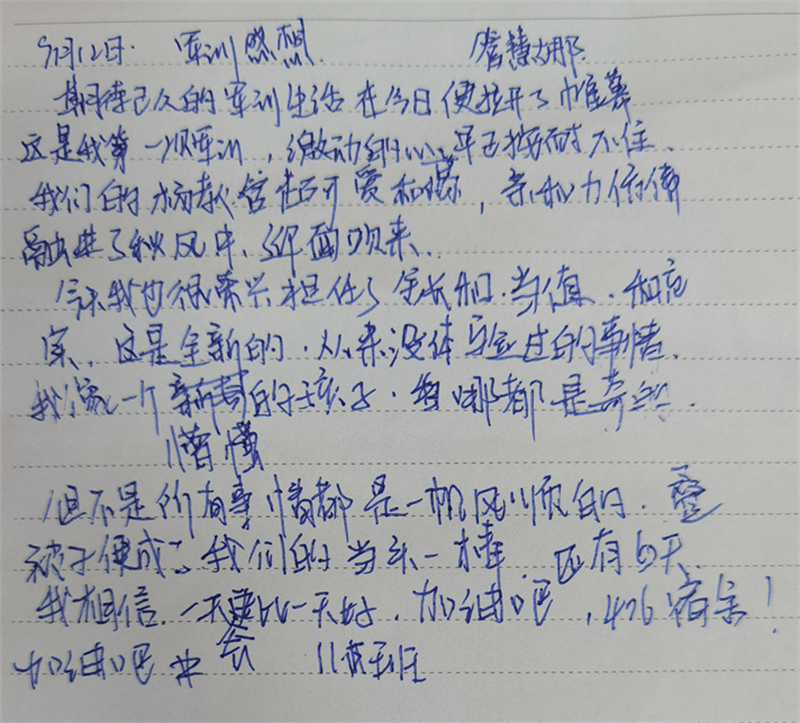 9月12日. 军训感想. 詹臻娜
期待已久的军训生活在今日便拉开了帷幕
这是我第一次军训，激动的心早已按耐不住.
我们的杨教官超可爱和蔼，亲和力仿佛
融进了秋风中，迎面吹来.
今天我也很荣兴担任了舍长和当值.
这是全新的.从来没体验过的事情.
我像一个新奇的孩子.看哪都是奇的.
懵懂
但不是所有事情都是一帆风顺的.叠
被子便成了我们的当头一棒.还有5天.
我相信.一天会比一天好.加油吧，426宿舍！
加油吧 11班